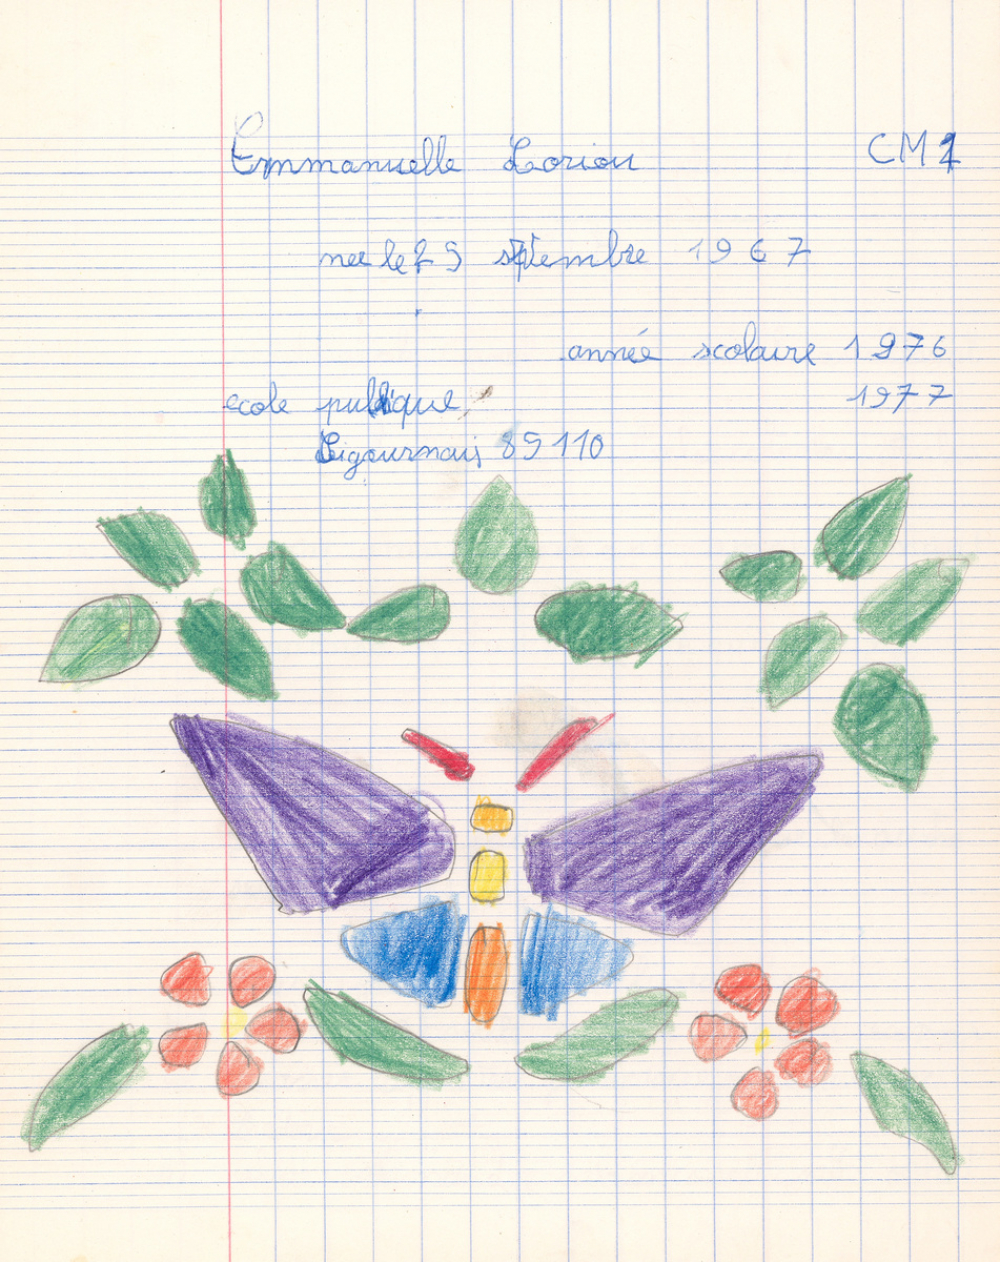 Emmanuelle Loriou CM1
née le 25 septembre 1967
année scolaire 1976
ecole publique 1977
Sigournais 85110